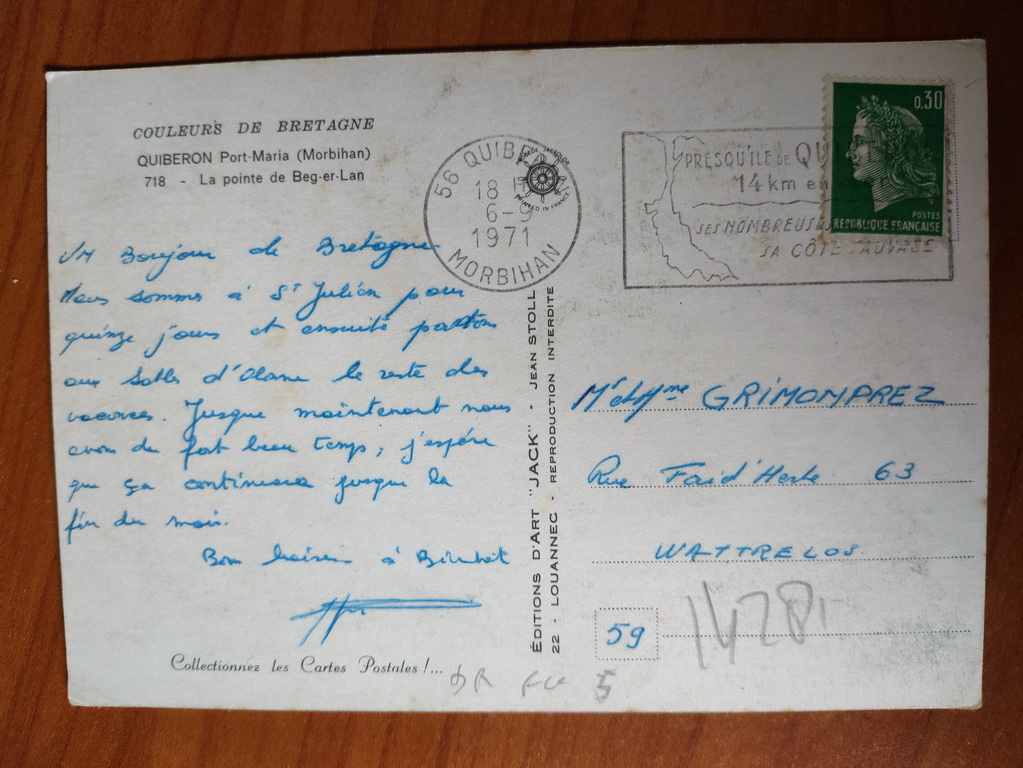 COULEURS DE BRETAGNE
QUIBERON Port-Maria (Morbihan)
718 - La pointe de Beg-er-Lan
Bonjour de Bretagne
Nous sommes à St Julien pour
quinze jours et ensuite partons
aux Sables d'Olonne le reste des
vacances. Jusque maintenant nous
avons du fort beau temps, j'espère
que ça continuera jusque la
fin du mois.
Bons baisers à Bientôt
Collectionnez les Cartes Postales !...
ÉDITIONS D'ART "JACK" - JEAN STOLL
22 - LOUANNEC - REPRODUCTION INTERDITE
56 QUIBERON
18 H
6-9
1971
MORBIHAN
PRINTED IN FRANCE
PRESQU'ILE DE QUI
14 km en
SES NOMBREUSE
SA CÔTE SAUVAGE
0,30
POSTES
REPUBLIQUE FRANÇAISE
Mr et Mme GRIMONPREZ
Rue Faid'Herbe 63
WATTRELOS
59
1428
5